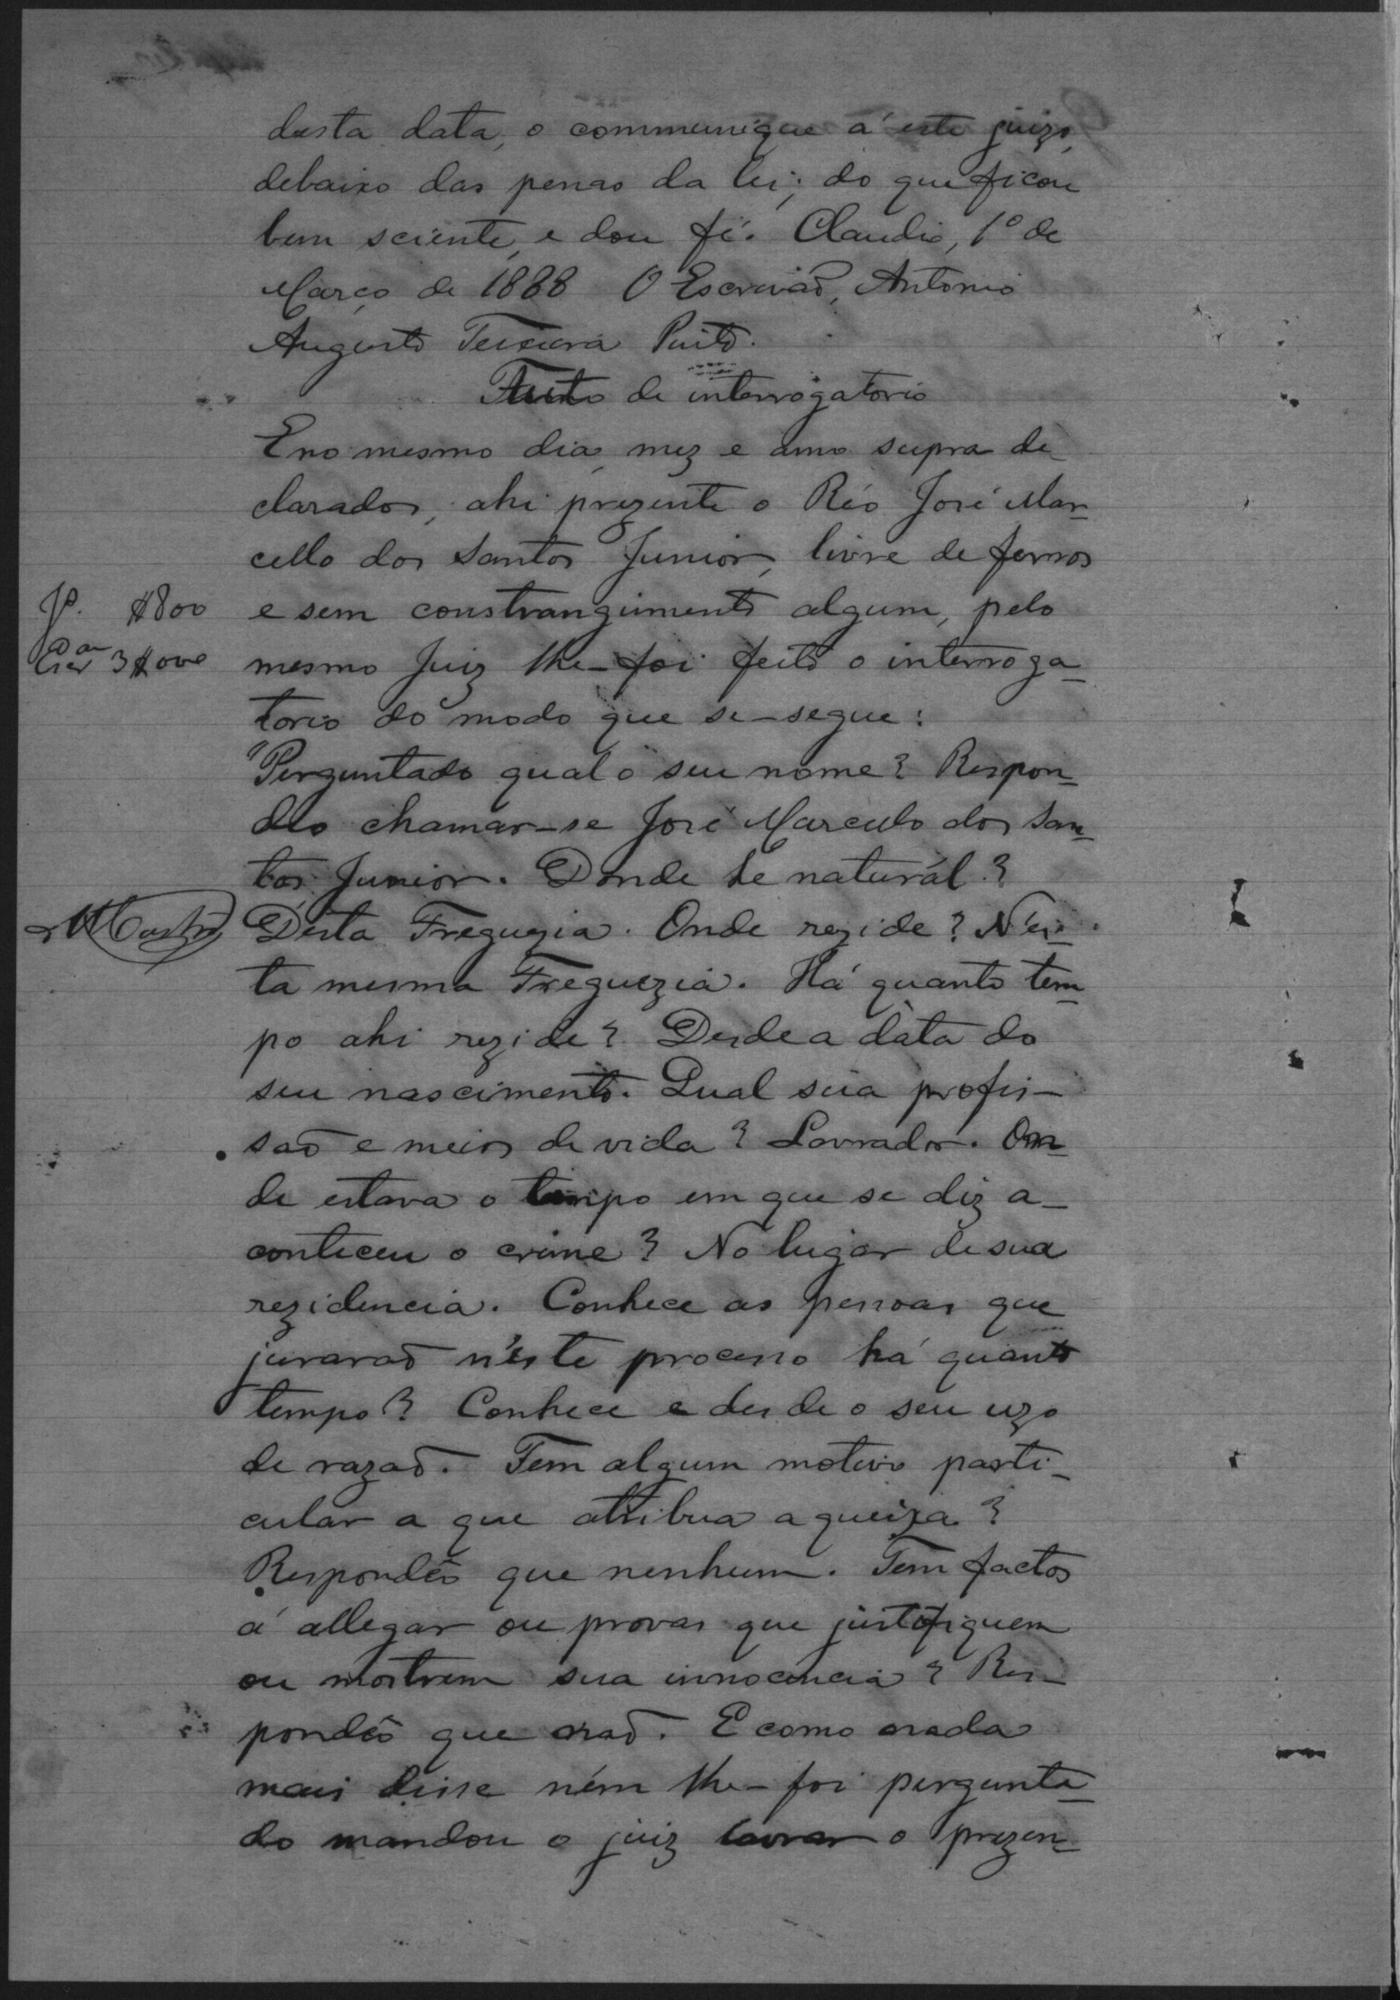 desta data, o communique á este juizo,
debaixo das penas da lei; do que ficou
bem sciente, e dou fé. Claudio, 1º de
Março de 1888 O Escrivaõ, Antonio
Augusto Teixeira
Auto de interrogatorio
E no mesmo dia, mez e anno supra de-
clarados, ahi prezente o Réo José Mar-
cello dos Santos Junior, livre de ferros
$800 e sem constrangimento algum, pelo
3$000 mesmo Juiz lhe-foi feito o interroga-
torio do modo que se-segue:
Perguntado qual o seu nome? Respon-
deo chamar-se José Marcello dos San-
tos Junior. Donde hé naturál?
Désta Freguezia. Onde rezide? N'és-
ta mesma Freguezia. Há quanto tem-
po ahi rezide? Desde a data do
seu nascimento. Qual sua profis-
saõ e meios de vida? Lavrador. On-
de estava o tempo em que se diz a-
conteceu o crime? No lugar de sua
rezidencia. Conhece as pessoas que
juraraõ n'éste processo há quanto
tempo? Conhece e desde o seu uzo
de razaõ. Tem algum motivo parti-
cular a que attribua a queixa?
Respondêo que nenhum. Tem factos
á allegar ou provas que justifiquem
ou mostrem sua innocencia? Res-
pondêo que naõ. E como nada
mais disse ném lhe-foi pergunta-
do mandou o juiz lavrar o prezen-